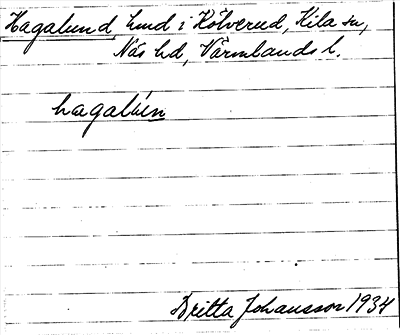 Hagalund, lund i Kölverud, Kila sn,
Näs hd, Värmlands l.
hagalún
Britta Johansson 1934